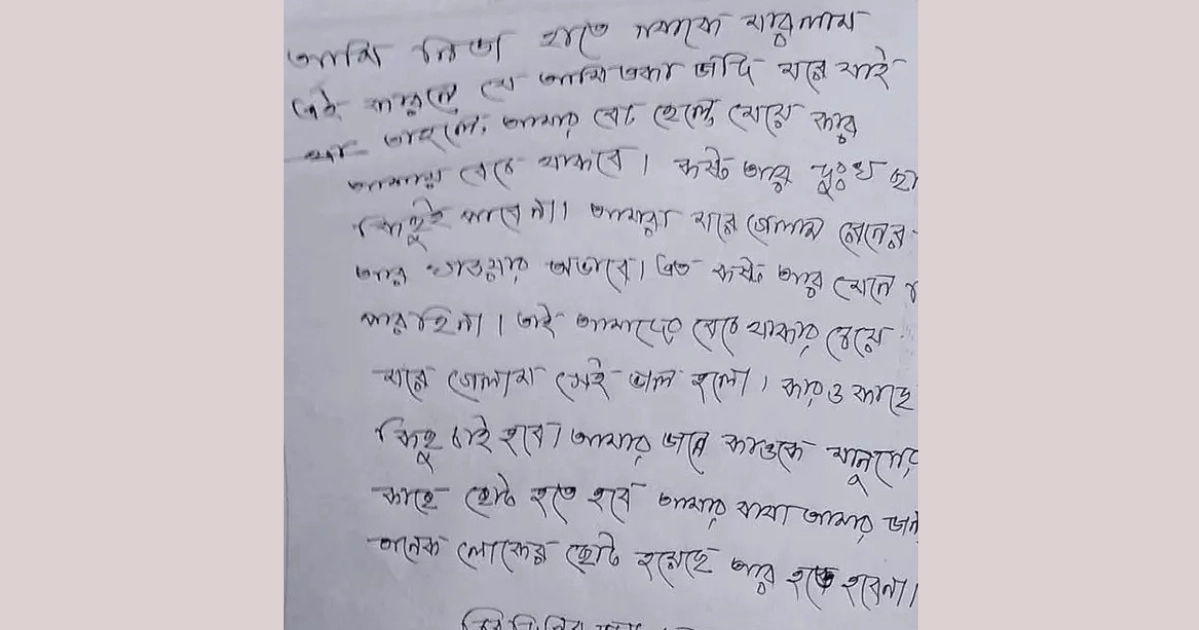 আমি নিজ হাতে সবাকে মারলাম
এই কারনে যে আমি একা জদি মরে যাই
তাহলে, আমার বৌ ছেলে মেয়ে কার
আসায় বেচে থাকবে। কস্ট আর দুঃখ ছা
কিছুই পাবেনা। আমরা মরে গেলাম রেনের
আর খাওয়ার অভাবে। এত কস্ট আর মেনে
পারছিনা। তাই আমাদের বেচে থাকার চেয়ে
মরে গেলাম সেই ভাল হলো। কারও কাছে
কিছু চাই হবে। আমার জন্যে কাওকে মানুসের
কাছে ছোট হতে হবে আমার বাবা আমার জন্য
অনেক লোকের ছোট হয়েছে আর হতে হবেনা।